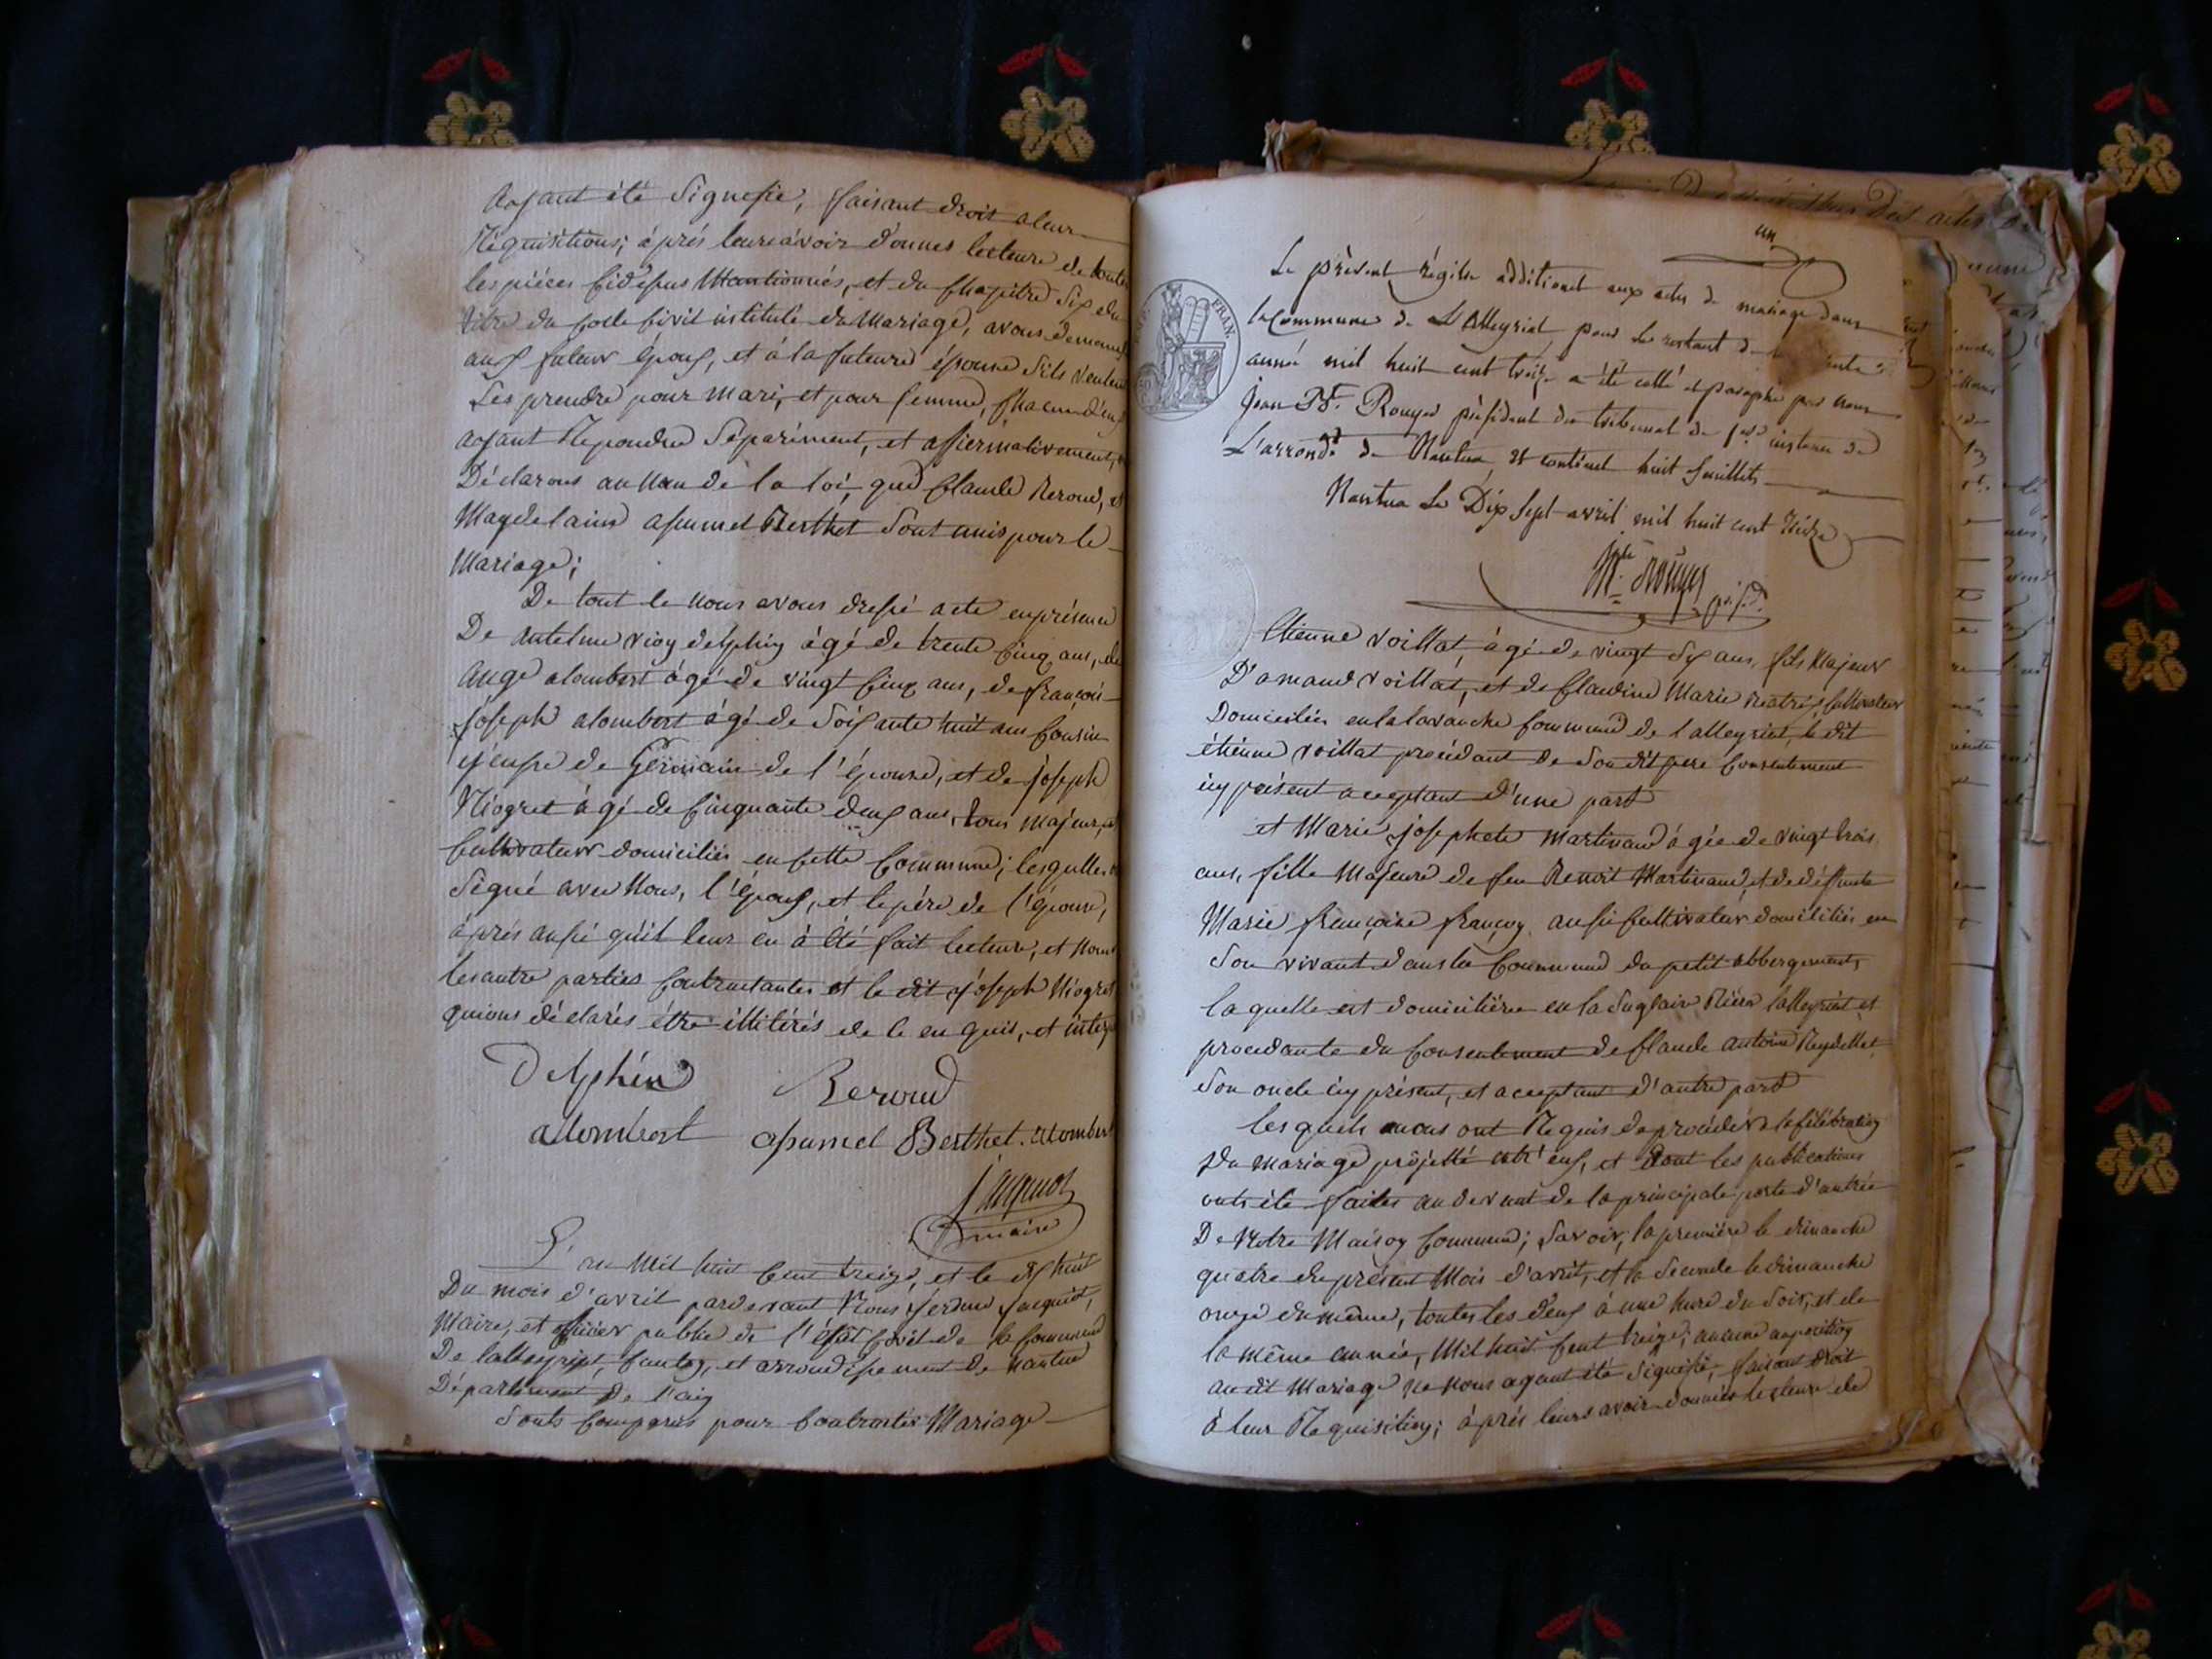 Ayant été Signefié, faisant droit a leur
Réquisitions; áprés leure avoir donnes lecteure de toute
les piéces cidesus Mantionnés, et du Chapitre Six du
titre du Code Civil intitulé du Mariage, avons demandé
aux futeur époux, et á la futeure épouse S'ils veulent
Ses prendre pour mari, et pour femme, Chacun d'eux
ayant Répondue Séparément, et affiermativement,
Déclarons au Nom de la loi, que Claude Beroud, et
Magdelaine apumel Berthet Sont unis pour le
Mariage;
De tout le nous avons dressé acte en présence
De antelme vion delphin ágé de trente Cinq ans, de
Ange alombert ágé de vingt Cinq ans, de françois
joseph alombert ágé de Soixante huit ans Cousin
de Germain de l'épouse, et de joseph
Niogret ágé de Cinquante deux ans, tous majeurs, et
Cultivateur domiciliés en Cette Commune; lesquelles
Signé avec Nous, l'époux, et le pére de l'épouse,
áprés aussi qu'il leur en á été fait lecteure, et non
les autre parties Contractantes et le dit joseph Niogret
qui ons déclarés étre illitérés de le en quis, et
Delphin Beroud
allombert apumel Berthet. alombert
jacquiot
maire
L'an Mil huit Cent treize, et le dix huit
Du mois d'avril pardevant Nous jacquiot,
Maire, et officier public de l'état Civil de la Commune
De lalleyriat, Canton, et arrondissement de Nantua
Département de l'ain
Sont Comparus pour Contracter Mariage
un
Le présent régitre additionel aux actes de mariage dans
la Commune de L'Alleyriat pour le restant de
année mil huit cent treize a été cotté et paraphé par nous
Jean Bte. Rouyer président du tribunal de 1ere instance de
L'arrondt de Nantua et contient huit feuillets
Nantua Le Dix Sept avril mil huit cent treize
Rouyer
FRAN.
Etienne voillat, ágé de vingt Six ans, fils Majeur
D'amand voillat, et de Claudine Marie Cultivateur
Domiciliés en la lavanche Commune de lalleyriat, le dit
étiénne voillat procédant de Son dit pere Consentement
icy présent aceptant d'une part
et Marie josephete Martinand ágée de vingt trois
ans, fille Majeure de feu Benoit Martinand, et de défunte
Marie françoise françoy. aussi Cultivateur domiciliés en
Son vivant dans la Commune du petit abbergement,
la quelle est domiciliére en la lalleyriat et
procedante du Consentement de Claude antoine Reydellet
Son oncle icy présent, et aceptant d'autre part
les quels nous ont Requis de procéder a la Célébration
Du mariage projetté entr'eux, et dont les publications
onts été faites au devant de la principale porte d'antrée
De Notre Maison Commune; Savoir, la premiére le dimanche
quatre du présent Mois d'avril, et la Seconde le dimanche
onze du même, toutes les deux á une hure du Soir, et de
la même année, Mil huit Cent treize; aucune aupposition
au dit Mariage ne nous ayant été Signefié, faisant droit
á leur Réquisition; áprés leurs avoir donnés lecteure de